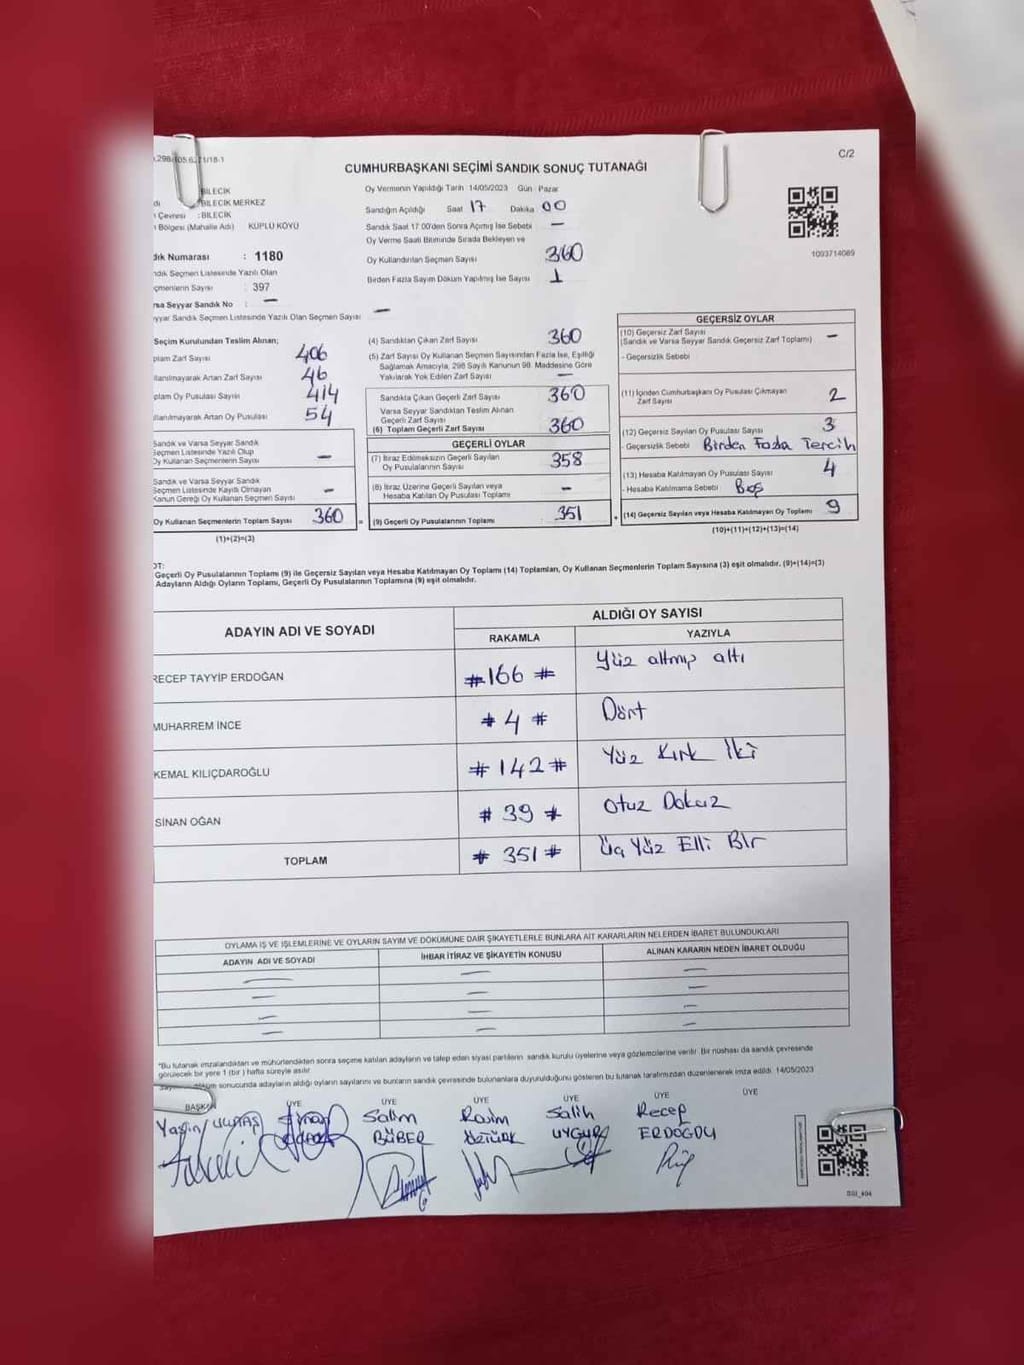 CUMHURBAŞKANI SEÇİMİ SANDIK SONUÇ TUTANAĞI
C/2
BİLECİK
BİLECİK MERKEZ
Çevresi : BİLECİK
Bölgesi (Mahalle Adı) KUPLU KÖYÜ
dık Numarası : 1180
ndık Seçmen Listesinde Yazılı Olan
çmenlerin Sayısı : 397
rsa Seyyar Sandık No : —
yyar Sandık Seçmen Listesinde Yazılı Olan Seçmen Sayısı —
Oy Vermenin Yapıldığı Tarih 14/05/2023 Gün Pazar
Sandığın Açıldığı Saat 17 Dakika 00
Sandık Saat 17:00'den Sonra Açılmış İse Sebebi —
Oy Verme Saati Bitiminde Sırada Bekleyen ve
Oy Kullandırılan Seçmen Sayısı 360
Birden Fazla Sayım Döküm Yapılmış İse Sayısı 1
1093714089
Seçim Kurulundan Teslim Alınan;
plam Zarf Sayısı 406
llanılmayarak Artan Zarf Sayısı 46
plam Oy Pusulası Sayısı 414
llanılmayarak Artan Oy Pusulası 54
Sandık ve Varsa Seyyar Sandık
Seçmen Listesinde Yazılı Olup
Oy Kullanan Seçmenlerin Sayısı —
Sandık ve Varsa Seyyar Sandık
Seçmen Listesinde Kayıtlı Olmayan
Kanun Gereği Oy Kullanan Seçmen Sayısı —
Oy Kullanan Seçmenlerin Toplam Sayısı 360
(1)+(2)=(3)
(4) Sandıktan Çıkan Zarf Sayısı 360
(5) Zarf Sayısı Oy Kullanan Seçmen Sayısından Fazla İse, Eşitliği
Sağlamak Amacıyla, 298 Sayılı Kanunun 98. Maddesine Göre
Yakılarak Yok Edilen Zarf Sayısı —
Sandıkta Çıkan Geçerli Zarf Sayısı 360
Varsa Seyyar Sandıktan Teslim Alınan
Geçerli Zarf Sayısı
(6) Toplam Geçerli Zarf Sayısı 360
GEÇERLİ OYLAR
(7) İtiraz Edilmeksizin Geçerli Sayılan
Oy Pusulalarının Sayısı 358
(8) İtiraz Üzerine Geçerli Sayılan veya
Hesaba Katılan Oy Pusulası Toplamı —
= (9) Geçerli Oy Pusulalarının Toplamı 351
GEÇERSİZ OYLAR
(10) Geçersiz Zarf Sayısı
(Sandık ve Varsa Seyyar Sandık Geçersiz Zarf Toplamı) —
- Geçersizlik Sebebi
(11) İçinden Cumhurbaşkanı Oy Pusulası Çıkmayan
Zarf Sayısı 2
(12) Geçersiz Sayılan Oy Pusulası Sayısı 3
- Geçersizlik Sebebi Birden Fazla Tercih
(13) Hesaba Katılmayan Oy Pusulası Sayısı 4
- Hesaba Katılmama Sebebi Boş
+ (14) Geçersiz Sayılan veya Hesaba Katılmayan Oy Toplamı 9
(10)+(11)+(12)+(13)=(14)
OT:
Geçerli Oy Pusulalarının Toplamı (9) ile Geçersiz Sayılan veya Hesaba Katılmayan Oy Toplamı (14) Toplamları, Oy Kullanan Seçmenlerin Toplam Sayısına (3) eşit olmalıdır. (9)+(14)=(3)
Adayların Aldığı Oyların Toplamı, Geçerli Oy Pusulalarının Toplamına (9) eşit olmalıdır.
ADAYIN ADI VE SOYADI
ALDIĞI OY SAYISI
RAKAMLA YAZIYLA
RECEP TAYYİP ERDOĞAN #166# Yüz altmış altı
MUHARREM İNCE #4# Dört
KEMAL KILIÇDAROĞLU #142# Yüz Kırk İki
SİNAN OĞAN #39# Otuz Dokuz
TOPLAM #351# Üç Yüz Elli Bir
OYLAMA İŞ VE İŞLEMLERİNE VE OYLARIN SAYIM VE DÖKÜMÜNE DAİR ŞİKAYETLERLE BUNLARA AİT KARARLARIN NELERDEN İBARET BULUNDUKLARI
ADAYIN ADI VE SOYADI İHBAR İTİRAZ VE ŞİKAYETİN KONUSU ALINAN KARARIN NEDEN İBARET OLDUĞU
— — —
— — —
— — —
— — —
*Bu tutanak imzalandıktan ve mühürlendikten sonra seçime katılan adayların ve talep eden siyasi partilerin sandık kurulu üyelerine veya gözlemcilerine verilir. Bir nüshası da sandık çevresinde
görülecek bir yere 1 (bir) hafta süreyle asılır
döküm sonucunda adayların aldığı oyların sayılarını ve bunların sandık çevresinde bulunanlara duyurulduğunu gösteren bu tutanak tarafımızdan düzenlenerek imza edildi. 14/05/2023
BAŞKAN ÜYE ÜYE ÜYE ÜYE ÜYE ÜYE
Salim Rasim Salih Recep
BÜBER ÖZTÜRK UYGUR ERDOĞDU